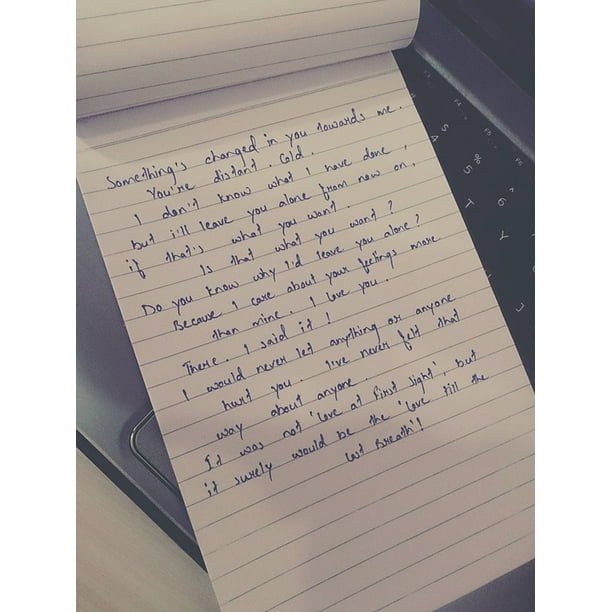 Something's changed in you towards me.
You're distant. Cold.
I don't know what I have done,
but i'll leave you alone from now on,
if that's what you want.
Is that what you want?
Do you know why I'd leave you alone?
Because I care about your feelings more
than mine. I love you.
There. I said it!
I would never let anything or anyone
hurt you. I've never felt that
way about anyone.
It was not 'love at first sight', but
it surely would be the 'love till the
last Breath'!
F3
F4
F5
F6
$
4
%
5
^
6
T
Y